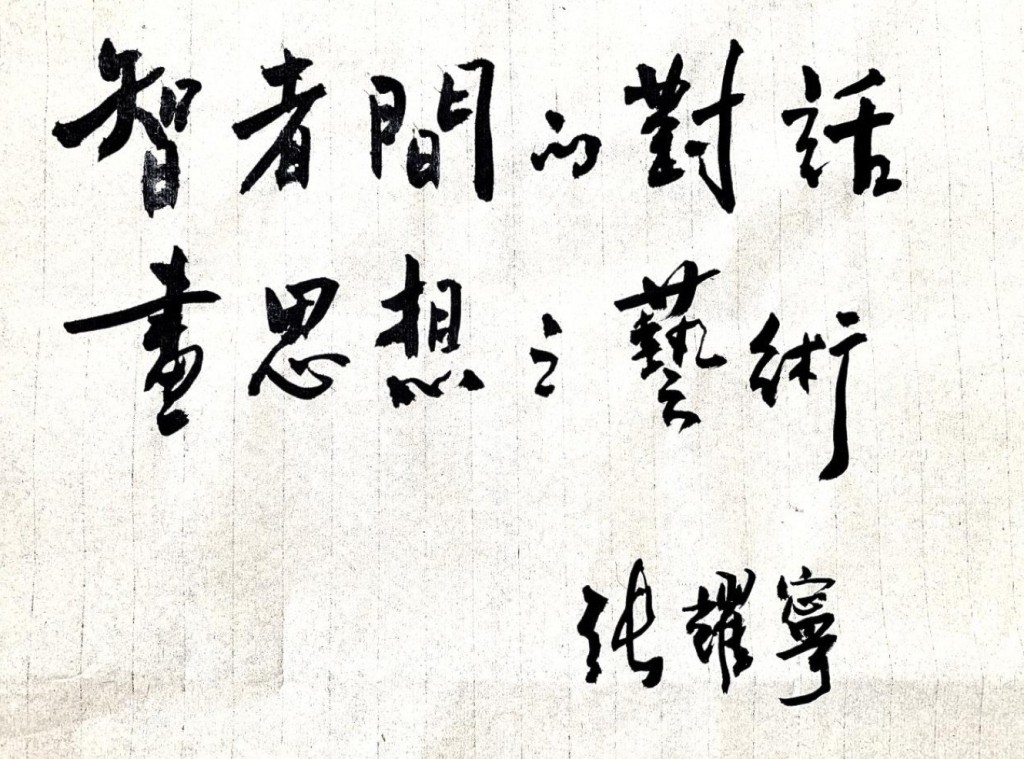 智者間的對話
畫思想之藝術
張耀寧